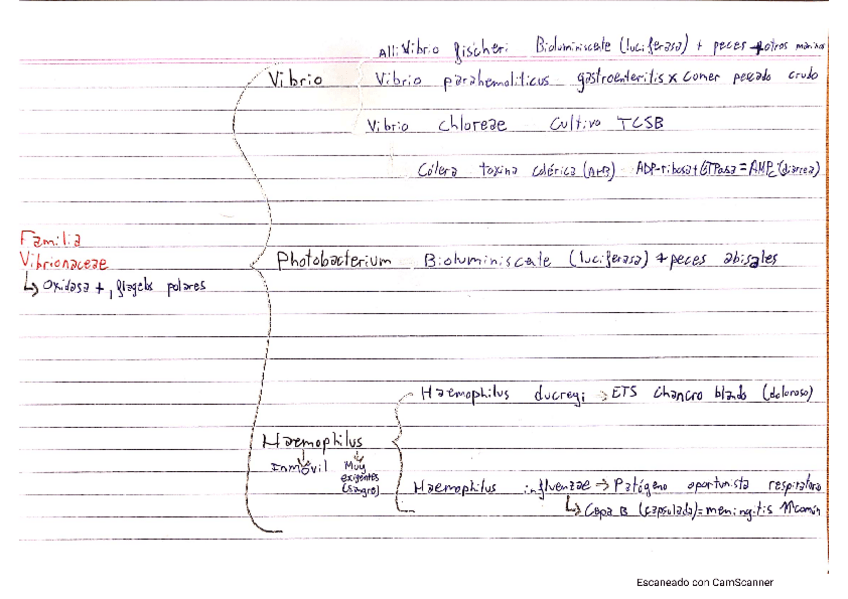 Allivibrio fischeri Bioluminiscente (luciferasa) + peces + otros marinos
Vibrio Vibrio parahemoliticus gastroenteritis x comer pescado crudo
Vibrio chloreae Cultivo TCSB
Cólera toxina colérica (A+B) ADP-ribosa + GTPasa = AMPc (diarrea)
Familia
Vibrionaceae
↳ Oxidasa +, flagelos polares
Photobacterium Bioluminiscente (luciferasa) + peces abisales
Haemophilus ducreyi → ETS Chancro blando (doloroso)
Haemophilus
Inmóvil Muy exigentes (sangre)
Haemophilus influenzae → Patógeno oportunista respiratorio
↳ Cepa B (capsulada) = meningitis ↑↑ común
Escaneado con CamScanner